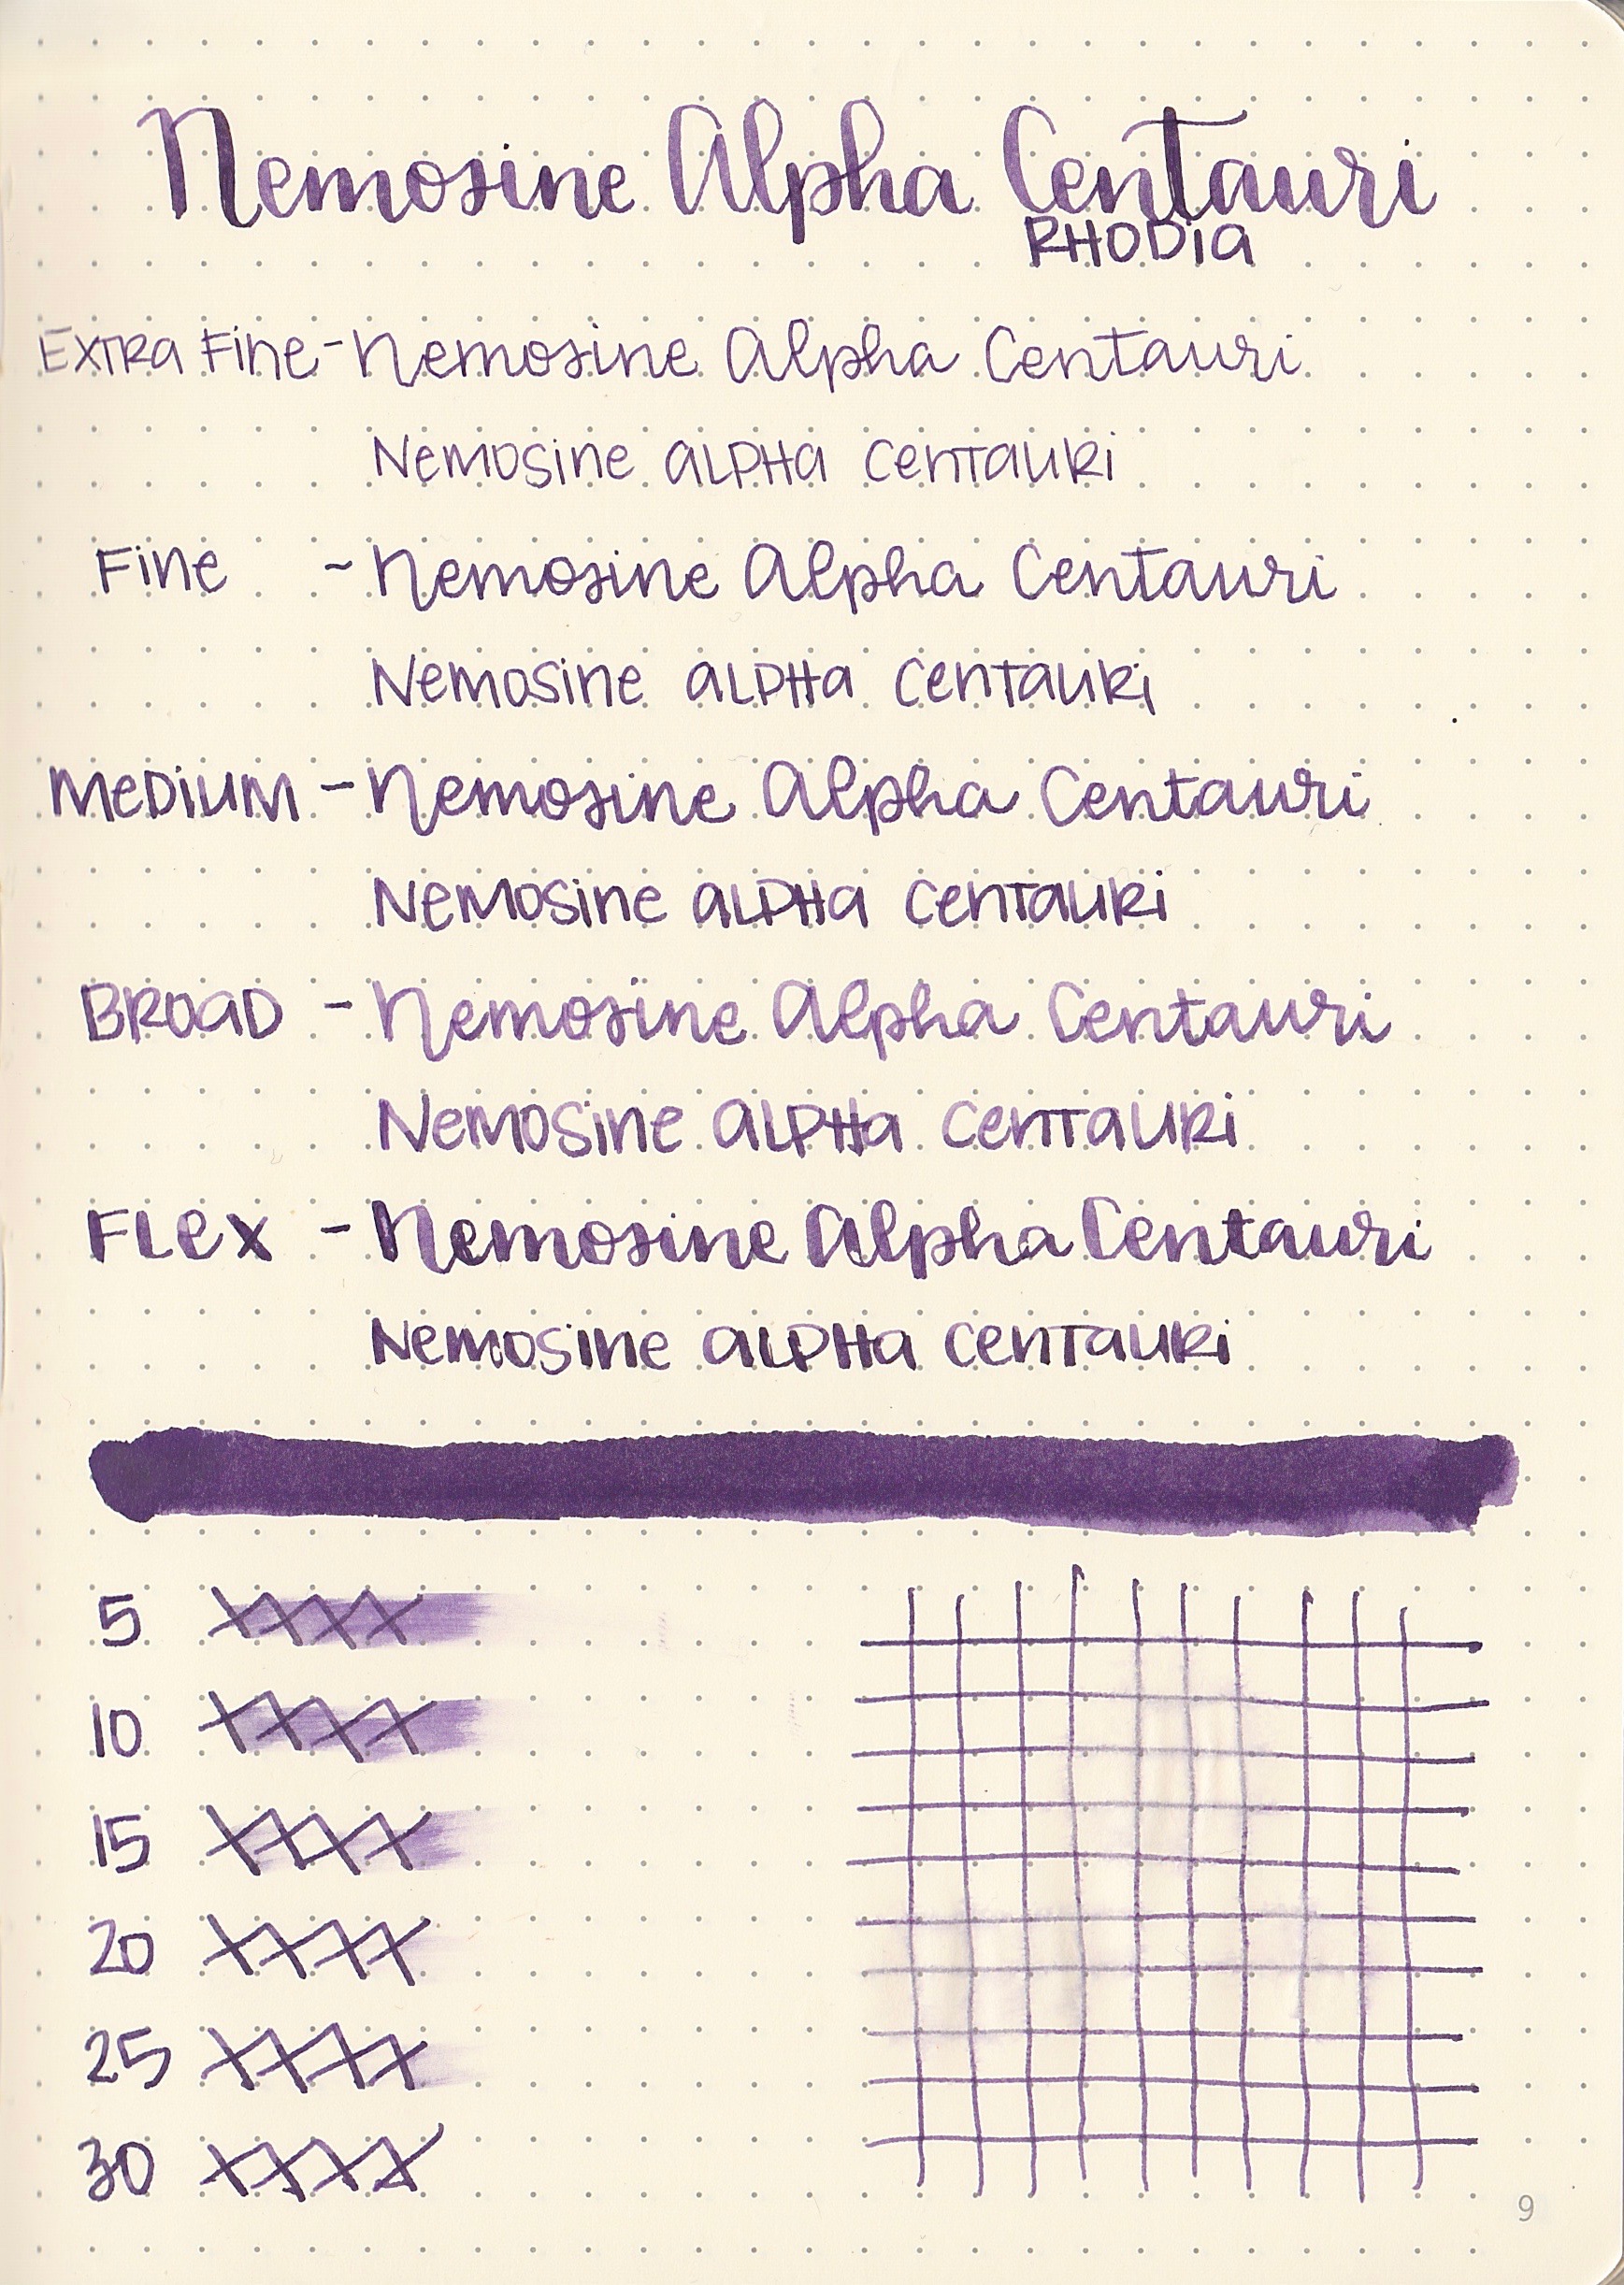 Nemosine Alpha Centauri
RHODIA
Extra Fine - Nemosine Alpha Centauri
Nemosine Alpha Centauri
Fine - Nemosine Alpha Centauri
Nemosine Alpha Centauri
Medium - Nemosine Alpha Centauri
Nemosine Alpha Centauri
Broad - Nemosine Alpha Centauri
Nemosine Alpha Centauri
Flex - Nemosine Alpha Centauri
Nemosine Alpha Centauri
5 XXXX
10 XXXX
15 XXXX
20 XXXX
25 XXXX
30 XXXX
9